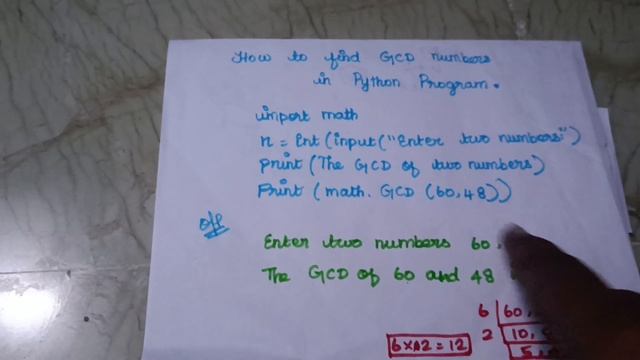 How to find GCD numbers
in Python Program.
import math
n = Int (input("Enter two numbers")
Print (The GCD of two numbers)
Print (math. GCD (60,48))
O/P
Enter two numbers 60
The GCD of 60 and 48
6 60,
2 10,
5,
6x2 = 12